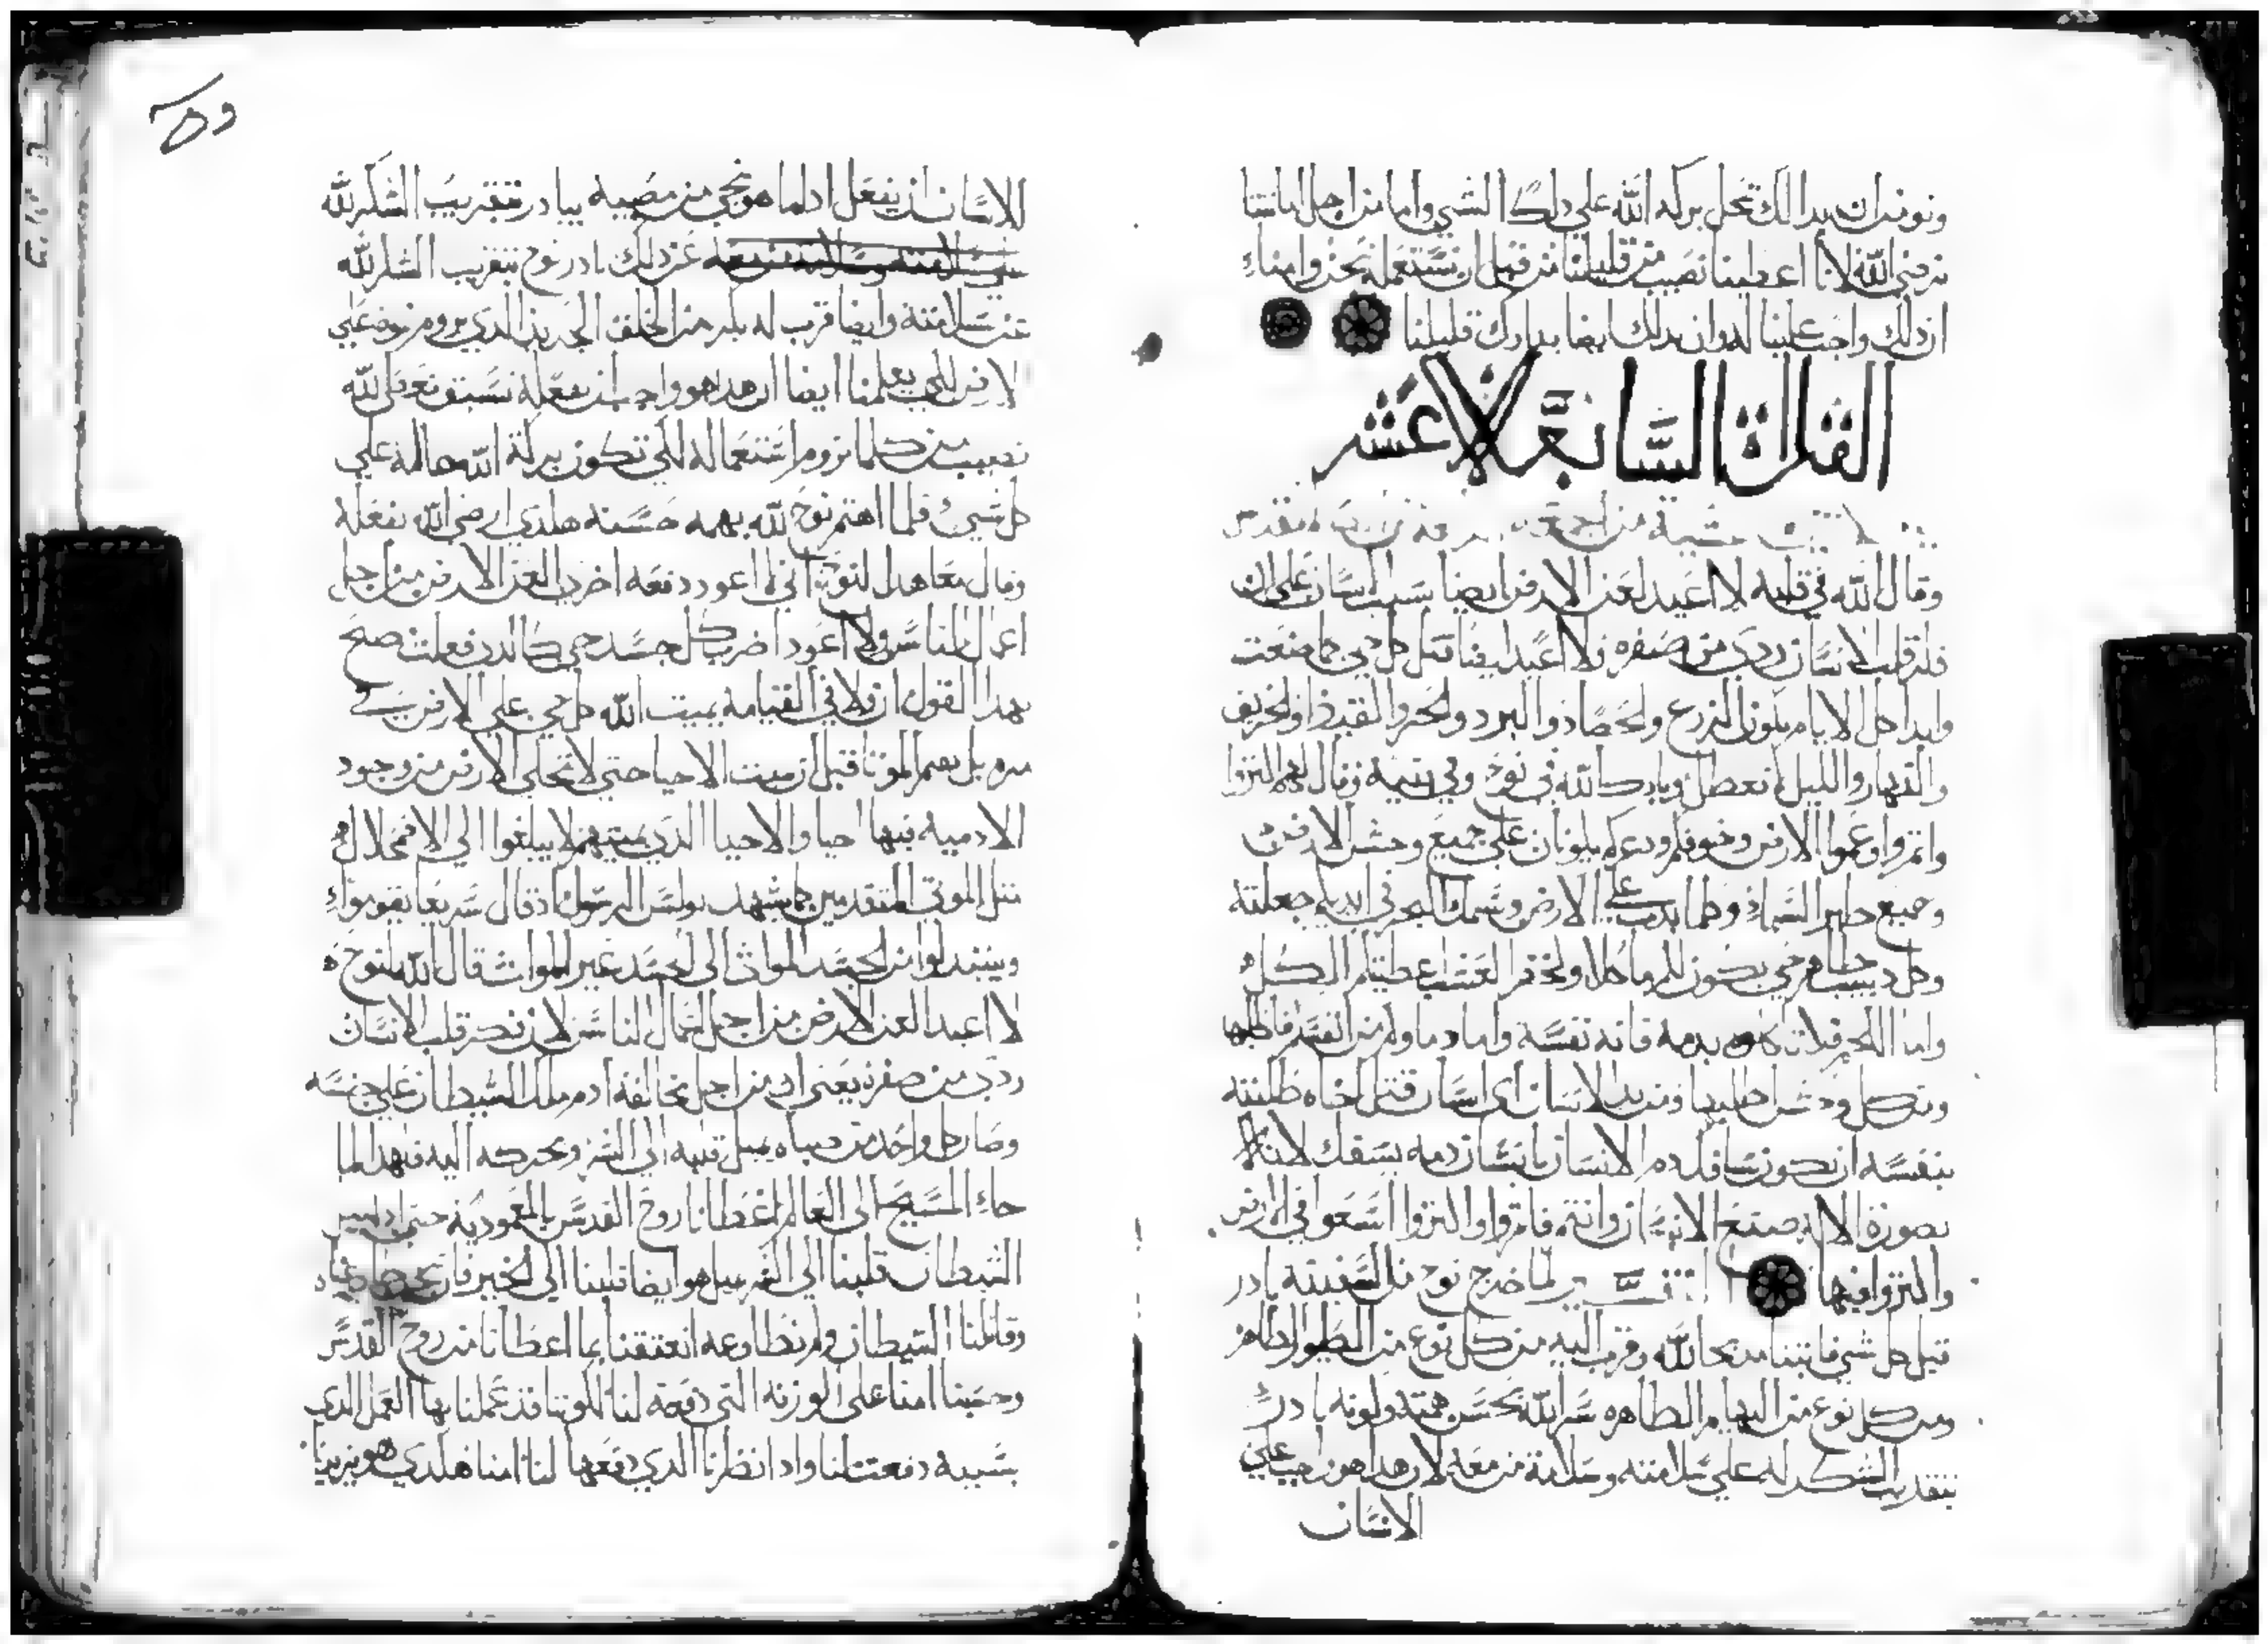 ونومن ان بدالك تحل بركة الله على دلك الشي واما من اجل اننا
نرضي الله لاننا اعطينا نصيب من قليلنا من قبل ان نستعمله نحن وامناء
ان ذلك واجب علينا له وان بدلك ايضا يبارك قليلنا
القراة السابعه عشر
وقال الله في قلبه لا اعيد لعن الارض ايضا بسبب انسان على ان
فكر قلب الانسان ردي من صغره فلا اعيد ايضا قتل كل حي كما صنعت
وابدا كل الايام يكون الزرع والحصاد والبرد والحر والقيظ والخريف
والنهار والليل لا تعطل وبارك الله في نوح وفي بنيه وقال لهم اكثروا
وانموا وعموا الارض وخوفكم ورعبكم يكونان على جميع وحش الارض
وجميع طير السماء وكلما يدب على الارض وسمك البحر في ايديكم جعلته
وكل دبيب طاهر حي يكون لكم ماكلا ولخضر العشب اعطيتكم الكل
واما اللحم فلا تاكلوه بدمه فانه نفسه واما دماوكم من انفسكم فاطلبها
ومن كل وحش اطلبها ومن يد الانسان اي انسان قتل اخاه طلبته
بنفسه ان يكون سافك دم الانسان بانسان دمه يسفك لانه
بصورة الاله صنع الانسان وانتم فانموا واكثروا اسعوا في الارض
واكثروا فيها تفسير لما خرج نوح من السفينة بادر
قبل كل شي فابتنا مدبحا لله وقرب اليه من كل نوع من الطيور الطاهر
ومن كل نوع من البهايم الطاهره سر الله بحسن همته ولونه بادر
بتقديب الشكر له على سلامته وسلامة من معه لان هدا هو واجب على
الانسان
الانسان ان يفعل ادا ما هو نجي من مصيبه يبادر بتقريب الشكر لله
عن دلك بادر نوح بتقريب الشكر لله
عن سلامته وايضا قرب له بكر من الخلف الجديد الدي يروم نوضه على
الارض لكي يعلمنا ايضا ان هدا هو واجب ان نفعله نسبق نعطي لله
نصيب من كلما نروم استعماله لكي تكون بركة الله حاله على
كل شي فلما اهتم نوح لله بهمه حسنه هكدي ارضي الله بفعله
وقال معاهدا لنوح اني لا اعود دفعه اخرى العن الارض من اجل
اعمال الناس ولا اعود اضرب كل جسد حي كالدي فعلت صح
بهدا القول ان ولا في القيامة يميت الله كل حي على الارض
مره بل يقيم الموتا قبل ان يميت الاحيا حتى لا تخلي الارض من وجود
الادميه فيها احيا والاحيا الدي يميتهم لا يبلغوا الى الاضمحلال
مثل الموتى المتقدمين كما يشهد بولس الرسول اد قال سريعا يقوموا
ويتبدلوا من الجسد المواث الى الجسد غير المواث قال الله لنوح
لا اعيد العن الارض من اجل اعمال الناس لان فكر قلب الانسان
ردي من صغره يعني ان من اجل مخالفة ادم ملك الشيطان على جنسه
وصار كل واحد من صباه يميل قلبه الى الشر وتحركه اليه فبهدا لما
جاء المسيح الى العالم اعطانا روح القدس بالمعموديه حتى اد اميل
الشيطان قلبنا الى الشر يميل هو ايضا قلبنا الى الخير فان
وقاتلنا الشيطان ولم نطاوعه انعتقنا بما اعطانا من روح القدس
وحسبنا امنا على الوزنه التي دفعة لنا لكوننا قد عملنا بها العمل الدي
بسببه دفعت لنا واد انظرنا الدي دفعها لنا امنا هكدي هو يزيدنا